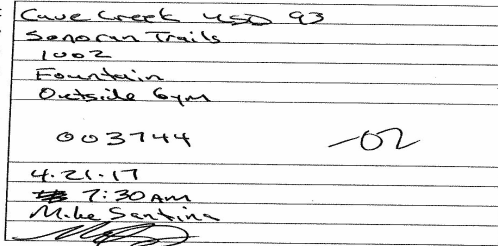 Cave Creek USD 93
Sonoran Trails
1002
Fountain
Outside Gym
003744 -02
4.21.17
7:30 AM
Mike Santina